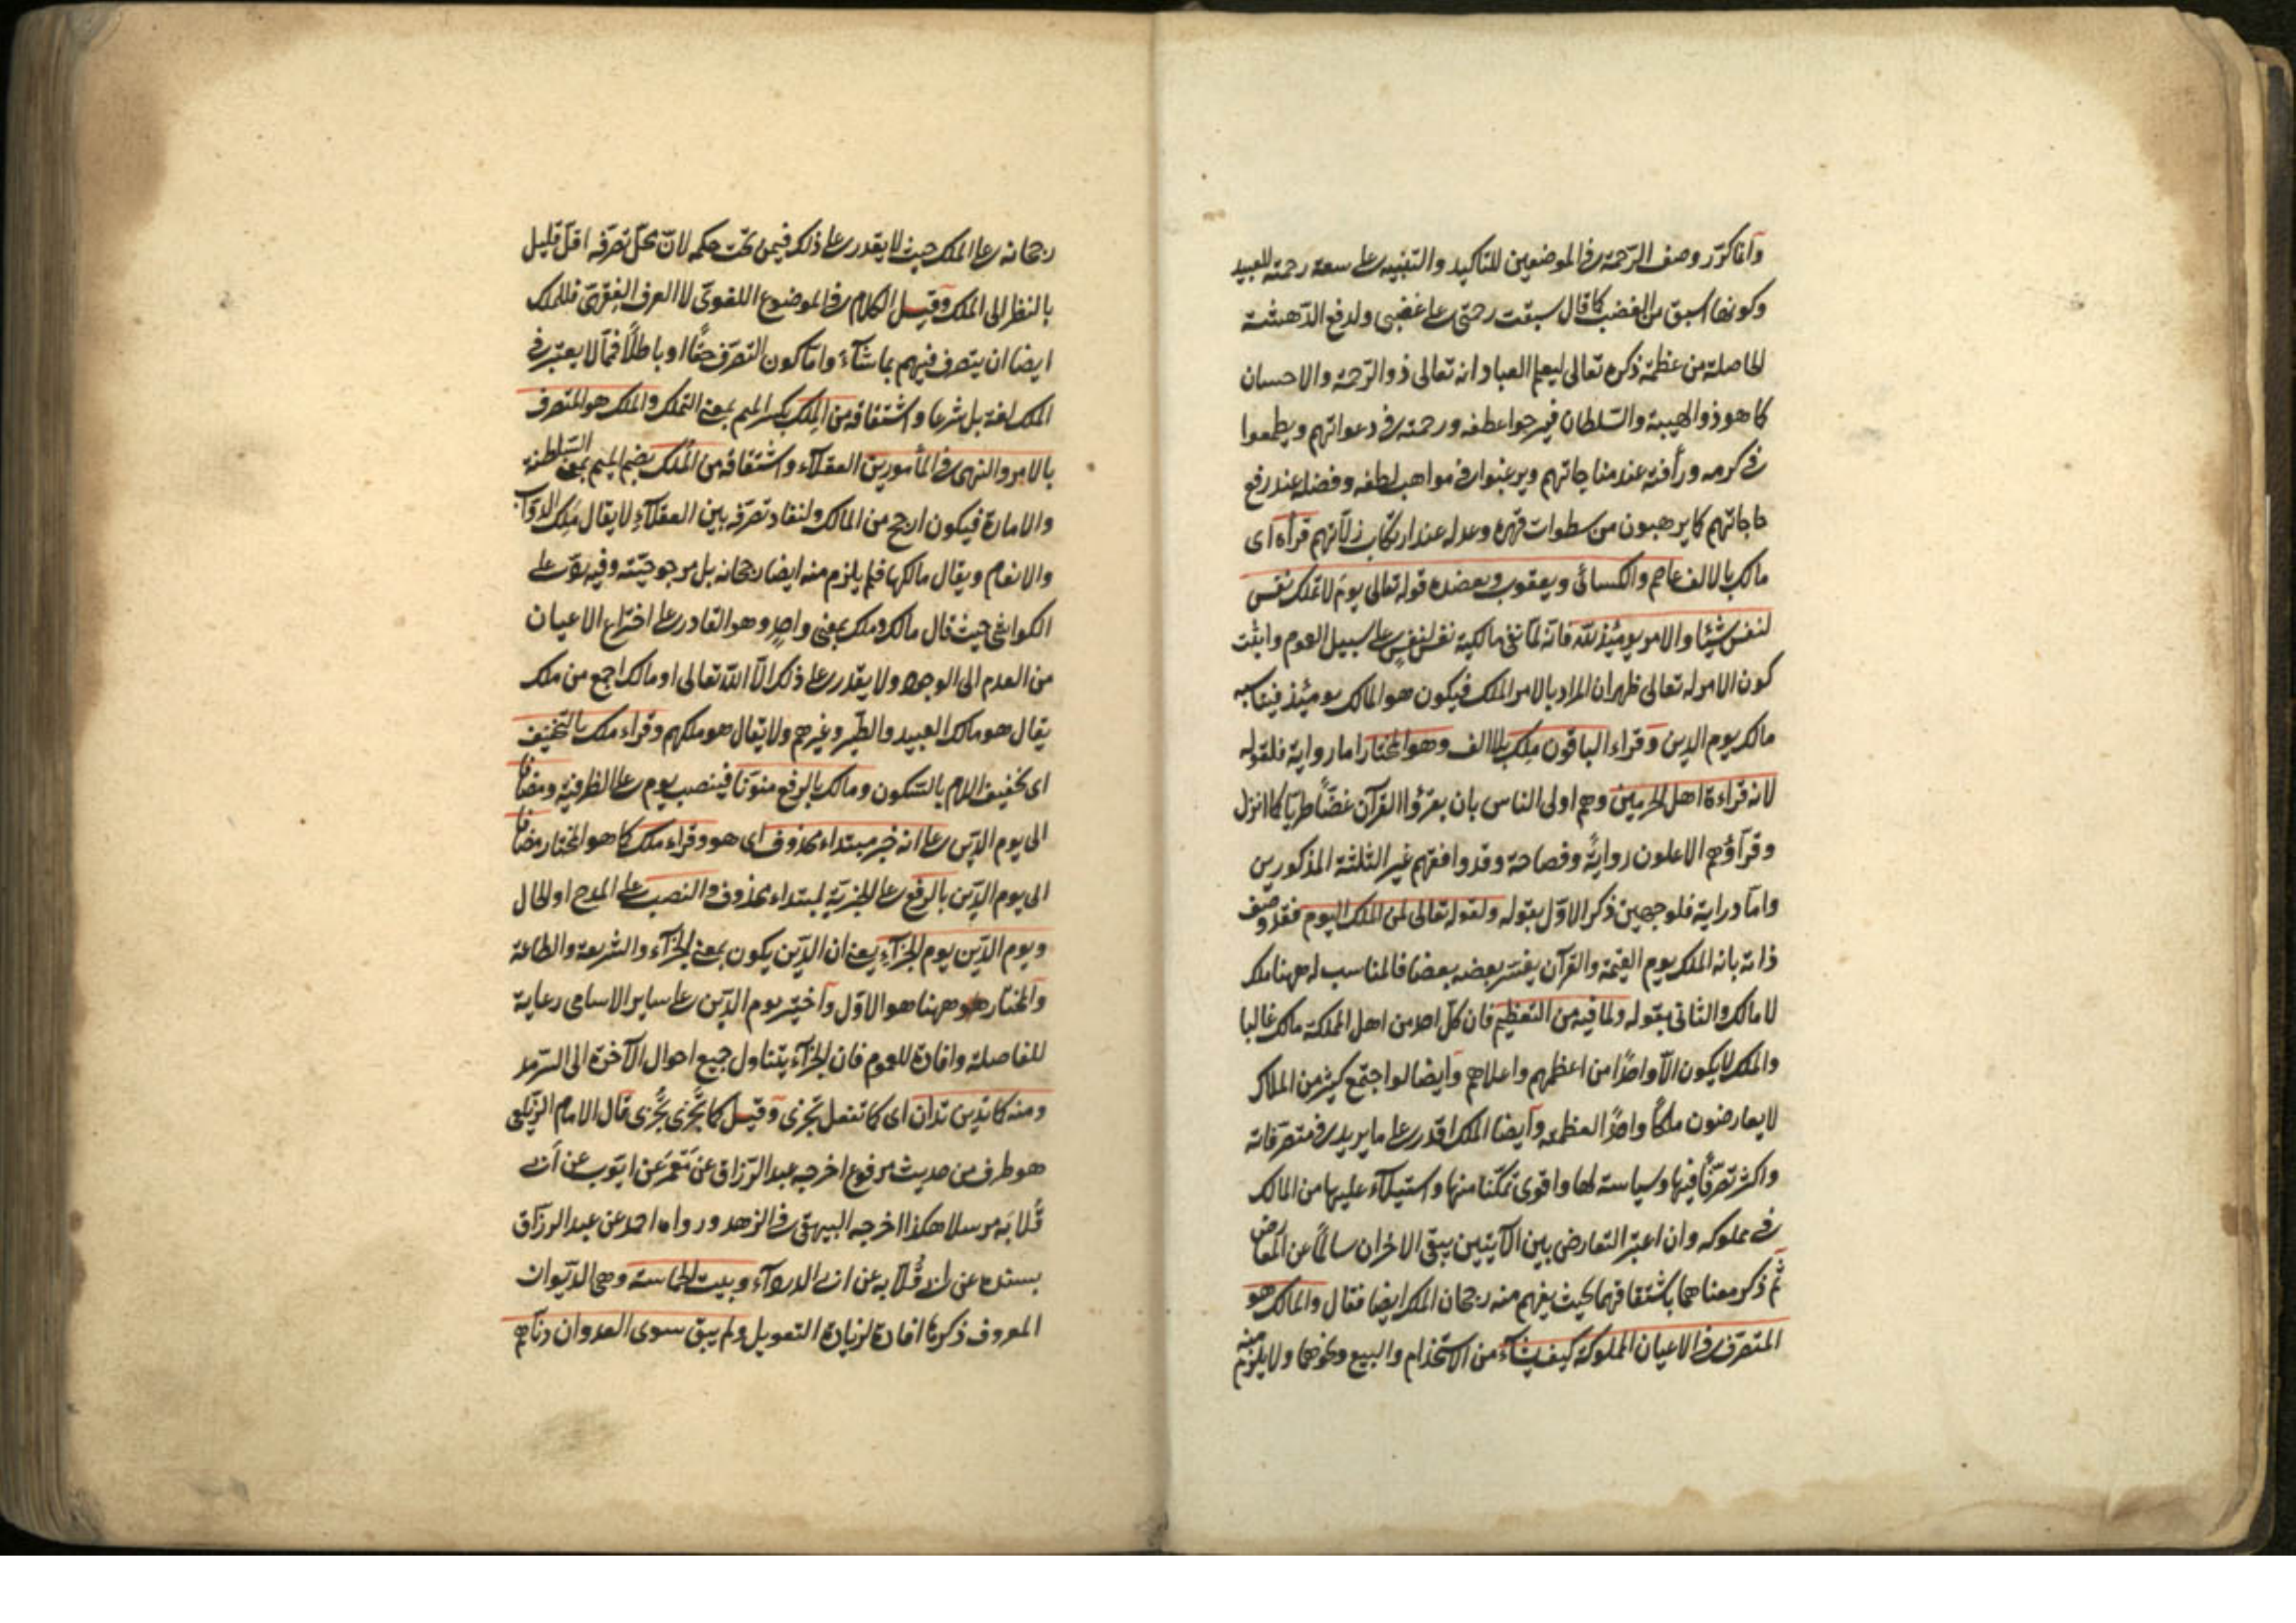 وانما كرّر وصف الرّحمة في الموضعين للتاكيد والتنبيه على سعة رحمته للعبيد
وكونها اسبق من الغضب كما قال سبقت رحمتى على غضبى ولدفع الدّهشة
الحاصلة من عظمة ذكره تعالى ليعلم العباد انه تعالى ذو الرّحمة والاحسان
كما هو ذو الهيبة والسّلطان فيرجوا عطفه ورحمته في دعواتهم ويطمعوا
في كرمه ورأفته عند مناجاتهم ويرغبوا في مواهب لطفه وفضله عند رفع
حاجاتهم كما يرهبون من سطوات قهره وعدله عند ارتكاب زلّاتهم قرأه اى
مالك بالالف عاصم والكسائى ويعقوب ويعضده قوله تعالى يوم لا تملك نفس
لنفس شيئا والامر يومئذ لله فانه لمّا نفى مالكية نفس لنفس على سبيل العموم واثبت
كون الامر له تعالى ظهر ان المراد بالامر الملك فيكون هو المالك يومئذ
مالك يوم الدين وقراء الباقون ملك بلا الف وهو المختار اما رواية فلقوله
لانه قراءة اهل الحرمين وهم اولى الناس بان يقرؤا القرآن غضّا طريّا كما انزل
وقرّاؤهم الاعلون رواية وفصاحة وقد وافقهم غير الثلثة المذكورين
وامّا دراية فلوجهين ذكر الاوّل بقوله ولقوله تعالى لمن الملك اليوم فقد وصف
ذاته بانه الملك يوم القيمة والقرآن يفسّر بعضه بعضا فالمناسب له ههنا ملك
لا مالك والثانى بقوله ولما فيه من التعظيم فان كلّ احد من اهل المملكة مالك غالبا
والملك لا يكون الّا واحدًا من اعظمهم واعلاهم وايضا لو اجتمع كثير من الملاك
لا يعارضون ملكًا واحدًا لعظمته وايضا الملك اقدر على ما يريد في متصرّفاته
واكثر تصرّفًا فيها وسياسة لها واقوى تمكّنا منها واستيلاء عليها من المالك
في مملوكه وان اعتبر التعارض بين الآيتين يبقى الاخران سالمًا عن المعارض
ثم ذكر معناهما باشتقاقهما بحيث يفهم منه رجحان الملك ايضا فقال والمالك هو
المتصرّف في الاعيان المملوكة كيف يشاء من الاستخدام والبيع ونحوهما ولا يلزم منه
رجحانه على الملك حيث لا يقدر على ذلك فيمن تحت حكمه لانّ محلّ تصرّفه اقلّ قليل
بالنظر الى الملك وقيل الكلام في الموضوع اللغوى لا العرف الفقهى فللملك
ايضا ان يتصرف فيهم بما شاء وامّا كون التصرّف حقّا او باطلًا فممّا لا يعتبر في
الملك لغة بل شرعا واشتقاقه من الملك بكسر الميم بمعنى التملك والملك هو المتصرف
بالامر والنهى في المأمورين العقلاء واشتقاقه من الملك بضم الميم بمعنى السّلطنة
والامارة فيكون ارجح من المالك ولنفاد تصرّفه بين العقلاء لا يقال ملك الدوابّ
والانعام ويقال مالكها فلم يلزم منه ايضا رجحانه بل مرجوحيّته وفيه ردّ على
الكواشى حيث قال مالك وملك بمعنى واحد وهو القادر على اختراع الاعيان
من العدم الى الوجود ولا يقدر على ذلك الّا الله تعالى او مالك اجمع من ملك
يقال هو مالك العبيد والطير وغيرهم ولا يقال هو ملكهم وقراء ملك بالتخفيف
اى تخفيف اللام بالسّكون ومالك بالرفع منوّنا فينصب يوم على الظرفية ومضافا
الى يوم الدّين على انه خبر مبتداء محذوف اى هو وقراء ملك كما هو المختار مضافا
الى يوم الدّين بالرفع على الخبريّة لمبتداء محذوف والنصب على المدح او الحال
ويوم الدّين يوم الجزاء يعنى ان الدّين يكون بمعنى الجزاء والشريعة والطاعة
والمختار هو ههنا هو الاوّل واختير يوم الدّين على ساير الاسامى رعاية
للفاصلة وافادة للعموم فان الجزاء يتناول جميع احوال الآخرة الى السّرمد
ومنه كما تدين تدان اى كما تفعل تجزى وقيل كما تجزى تجزى قال الامام الزيلعى
هو طرف من حديث مرفوع اخرجه عبد الرّزاق عن معمر عن ايّوب عن ابى
قلابة مرسلا هكذا اخرجه البيهقى في الزهد ورواه احمد عن عبد الرزاق
بسنده عن ابى قلابة عن ابى الدرداء وبيت الحماسة وهى الدّيوان
المعروف ذكرها افادة لزيادة التعويل ولم يبق سوى العدوان دنّاهم